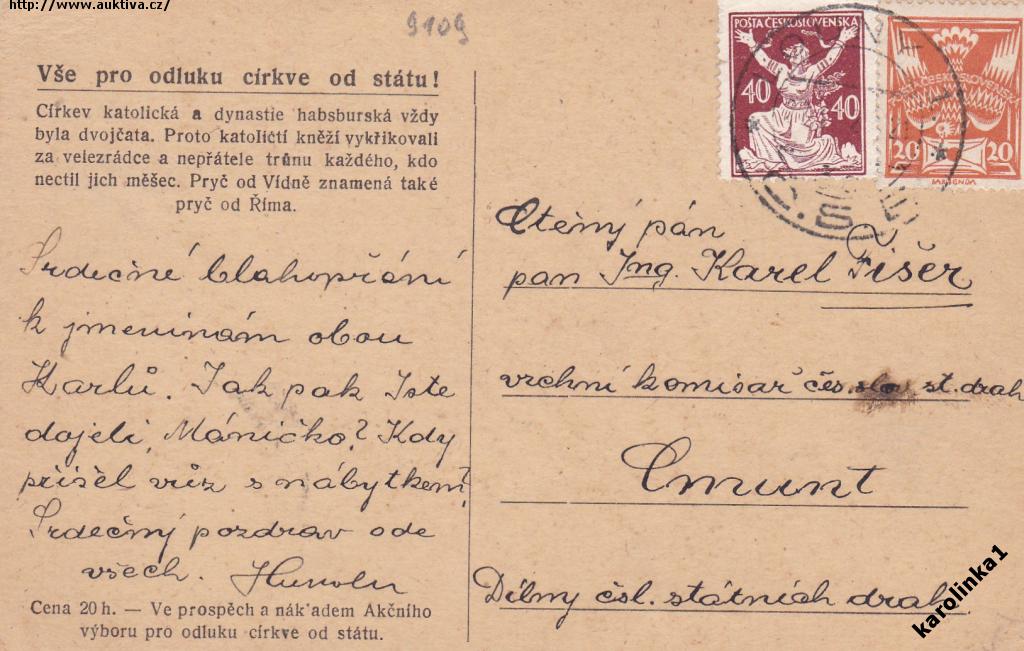 http://www.auktiva.cz/
9109
Vše pro odluku církve od státu!
Církev katolická a dynastie habsburská vždy
byla dvojčata. Proto katoličtí kněží vykřikovali
za velezrádce a nepřátele trůnu každého, kdo
nectil jich měšec. Pryč od Vídně znamená také
pryč od Říma.
Srdečné blahopřání
k jmeninám obou
Karlů. Jak pak jste
dojeli, Máničko? Kdy
přišel vůz s nábytkem?
Srdečný pozdrav ode
všech.
Cena 20 h. — Ve prospěch a nák'adem Akčního
výboru pro odluku církve od státu.
POŠTA ČESKOSLOVENSKÁ
40 40
ČESKOSLOVENSKÁ
20 20
Ctěný pán
pan Ing. Karel Fišer
vrchní komisař čes. slov. st. drah
Cmunt
Dílny čsl. státních drah.
karolinka1